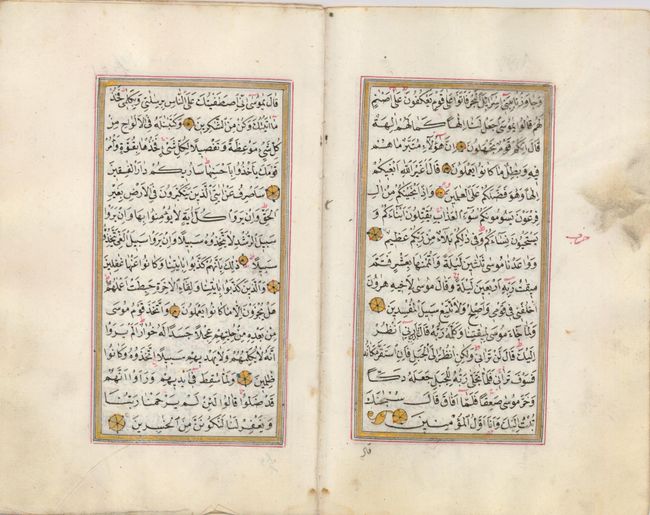 وَجَاوَزْنَا بِبَنِي اِسْرَائِلَ الْبَحْرَ فَاَتَوْا عَلٰى قَوْمٍ يَعْكُفُونَ عَلٰى اَصْنَامٍ
لَهُمْ قَالُوا يٰمُوسَى اجْعَلْ لَنَا اِلٰهًا كَمَا لَهُمْ اٰلِهَةٌ
قَالَ اِنَّكُمْ قَوْمٌ تَجْهَلُونَ اِنَّ هٰؤُلَاءِ مُتَبَّرٌ مَا هُمْ
فِيهِ وَبَاطِلٌ مَا كَانُوا يَعْمَلُونَ قَالَ اَغَيْرَ اللّٰهِ اَبْغِيكُمْ
اِلٰهًا وَهُوَ فَضَّلَكُمْ عَلَى الْعٰلَمِينَ وَاِذْ اَنْجَيْنٰكُمْ مِنْ اٰلِ
فِرْعَوْنَ يَسُومُونَكُمْ سُوءَ الْعَذَابِ يُقَتِّلُونَ اَبْنَاءَكُمْ وَ
يَسْتَحْيُونَ نِسَاءَكُمْ وَفِي ذٰلِكُمْ بَلَاءٌ مِنْ رَبِّكُمْ عَظِيمٌ
وَوَاعَدْنَا مُوسٰى ثَلٰثِينَ لَيْلَةً وَاَتْمَمْنٰهَا بِعَشْرٍ فَتَمَّ
مِيقَاتُ رَبِّهِ اَرْبَعِينَ لَيْلَةً وَقَالَ مُوسٰى لِاَخِيهِ هٰرُونَ
اخْلُفْنِي فِي قَوْمِي وَاَصْلِحْ وَلَا تَتَّبِعْ سَبِيلَ الْمُفْسِدِينَ
وَلَمَّا جَاءَ مُوسٰى لِمِيقَاتِنَا وَكَلَّمَهُ رَبُّهُ قَالَ رَبِّ اَرِنِي اَنْظُرْ
اِلَيْكَ قَالَ لَنْ تَرٰينِي وَلٰكِنِ انْظُرْ اِلَى الْجَبَلِ فَاِنِ اسْتَقَرَّ مَكَانَهُ
فَسَوْفَ تَرٰينِي فَلَمَّا تَجَلّٰى رَبُّهُ لِلْجَبَلِ جَعَلَهُ دَكًّا
وَخَرَّ مُوسٰى صَعِقًا فَلَمَّا اَفَاقَ قَالَ سُبْحٰنَكَ
تُبْتُ اِلَيْكَ وَاَنَا اَوَّلُ الْمُؤْمِنِينَ
قال
حزب
قَالَ يٰمُوسٰى اِنِّي اصْطَفَيْتُكَ عَلَى النَّاسِ بِرِسٰلٰتِي وَبِكَلَامِي فَخُذْ
مَا اٰتَيْتُكَ وَكُنْ مِنَ الشّٰكِرِينَ وَكَتَبْنَا لَهُ فِي الْاَلْوَاحِ مِنْ
كُلِّ شَيْءٍ مَوْعِظَةً وَتَفْصِيلًا لِكُلِّ شَيْءٍ فَخُذْهَا بِقُوَّةٍ وَأْمُرْ
قَوْمَكَ يَأْخُذُوا بِاَحْسَنِهَا سَاُرِيكُمْ دَارَ الْفٰسِقِينَ
سَاَصْرِفُ عَنْ اٰيٰتِيَ الَّذِينَ يَتَكَبَّرُونَ فِي الْاَرْضِ بِغَيْرِ
الْحَقِّ وَاِنْ يَرَوْا كُلَّ اٰيَةٍ لَا يُؤْمِنُوا بِهَا وَاِنْ يَرَوْا
سَبِيلَ الرُّشْدِ لَا يَتَّخِذُوهُ سَبِيلًا وَاِنْ يَرَوْا سَبِيلَ الْغَيِّ يَتَّخِذُوهُ
سَبِيلًا ذٰلِكَ بِاَنَّهُمْ كَذَّبُوا بِاٰيٰتِنَا وَكَانُوا عَنْهَا غٰفِلِينَ
وَالَّذِينَ كَذَّبُوا بِاٰيٰتِنَا وَلِقَاءِ الْاٰخِرَةِ حَبِطَتْ اَعْمَالُهُمْ
هَلْ يُجْزَوْنَ اِلَّا مَا كَانُوا يَعْمَلُونَ وَاتَّخَذَ قَوْمُ مُوسٰى
مِنْ بَعْدِهِ مِنْ حُلِيِّهِمْ عِجْلًا جَسَدًا لَهُ خُوَارٌ اَلَمْ يَرَوْا
اَنَّهُ لَا يُكَلِّمُهُمْ وَلَا يَهْدِيهِمْ سَبِيلًا اِتَّخَذُوهُ وَكَانُوا
ظٰلِمِينَ وَلَمَّا سُقِطَ فِي اَيْدِيهِمْ وَرَاَوْا اَنَّهُمْ
قَدْ ضَلُّوا قَالُوا لَئِنْ لَمْ يَرْحَمْنَا رَبُّنَا
وَيَغْفِرْ لَنَا لَنَكُونَنَّ مِنَ الْخٰسِرِينَ